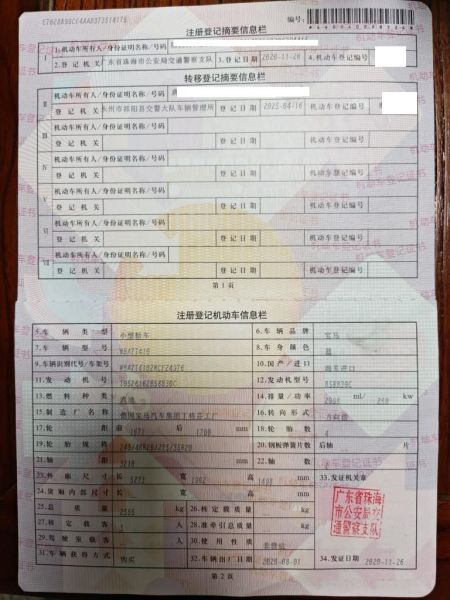 注册登记摘要信息栏 编号:
Ⅰ 1.机动车所有人/身份证明名称/号码
2.登记机关 广东省珠海市公安局交通警察支队 3.登记日期 2020-11-26 4.机动车登记编号
转移登记摘要信息栏
Ⅱ 机动车所有人/身份证明名称/号码
登记机关 永州市祁阳县交警大队车辆管理所 登记日期 2023-04-16 机动车登记编号
Ⅲ 机动车所有人/身份证明名称/号码
登记机关 登记日期 机动车登记编号
Ⅳ 机动车所有人/身份证明名称/号码
登记机关 登记日期 机动车登记编号
Ⅴ 机动车所有人/身份证明名称/号码
登记机关 登记日期 机动车登记编号
Ⅵ 机动车所有人/身份证明名称/号码
登记机关 登记日期 机动车登记编号
Ⅶ 机动车所有人/身份证明名称/号码
登记机关 登记日期 机动车登记编号
第1页
注册登记机动车信息栏
5.车辆类型 小型轿车 6.车辆品牌 宝马
7.车辆型号 8.车身颜色 蓝
9.车辆识别代号/车架号 10.国产/进口
11.发动机号 12.发动机型号 B58B30C
13.燃料种类 汽油 14.排量/功率 ml/ kw
15.制造厂名称 德国宝马汽车集团丁格芬工厂 16.转向形式 方向盘
17.轮距 前 后 1700 mm 18.轮胎数 4
19.轮胎规格 20.钢板弹簧片数 后轴 片
21.轴距 3210 mm 22.轴数 2
23.外廓尺寸 长 5273 宽 1902 高 mm 33.发证机关章
24.货厢内部尺寸 长 宽 高 mm
25.总质量 kg 26.核定载质量 kg
27.核定载客 人 28.准牵引总质量 kg
29.驾驶室载客 人 30.使用性质 非营运
31.车辆获得方式 购买 32.车辆出厂日期 2020-08-01 34.发证日期 2020-11-26
广东省珠海
市公安局交
通警察支队
第2页